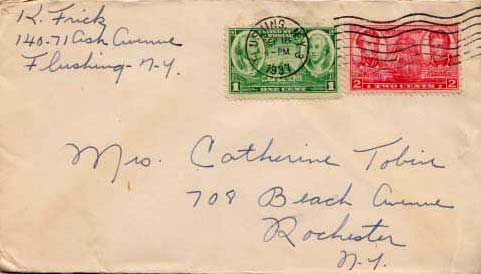 K. Frick
140-71 Ash Avenue
Flushing - N.Y.
FLUSHING, N.Y.
PM
1937
1 ONE CENT 1
2 TWO CENTS 2
Mrs. Catherine Tobin
708 Beach Avenue
Rochester
N.Y.